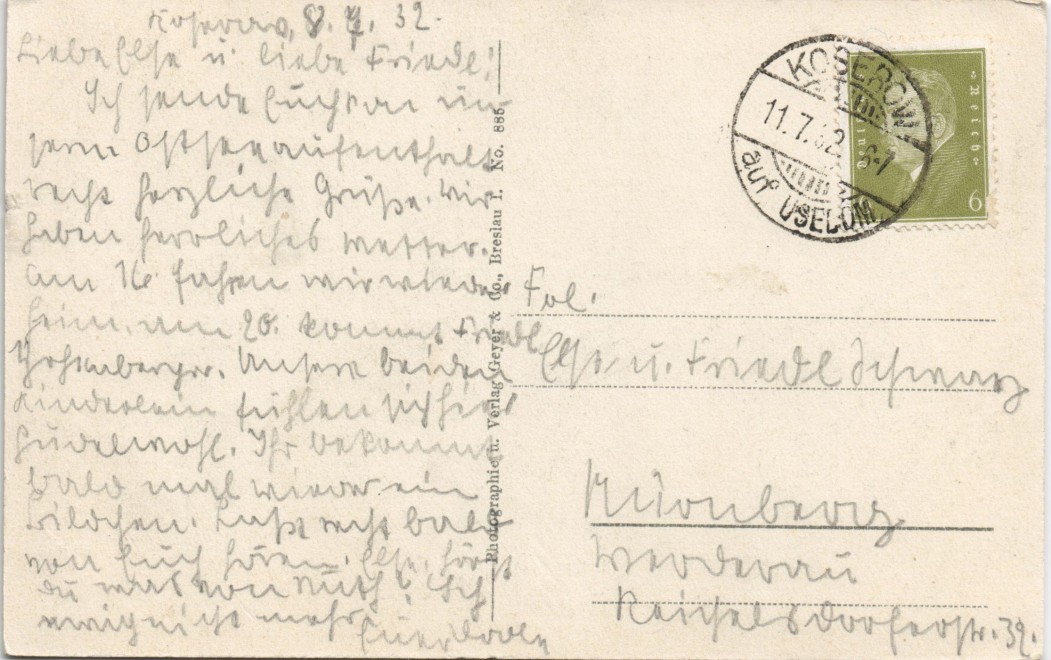 Koserow, 8. 7. 32.
Liebe Else u. liebe Friedl!
Ich sende Euch von un-
serm Ostseeaufenthalt
recht herzliche Grüße. Wir
haben herrliches Wetter.
Am 16. fahren wir wieder
heim. Am 20. kommt Friedl
Unsere beiden
Kinderlein fühlen sich hier
pudelwohl. Ihr bekommt
bald mal wieder ein
Bildchen. Laßt recht bald
von Euch hören. Else, hörst
Du was von Ruth? Ich
ewig nicht mehr.
Photographie u. Verlag Geyer & Co., Breslau I. No. 885
KOSEROW
11.7.32. 6-7
auf USEDOM
Deutsches Reich
6
Frl.
Else u. Friedl Schwarz
Nürnberg
Werderau
Reichelsdorferstr. 32.